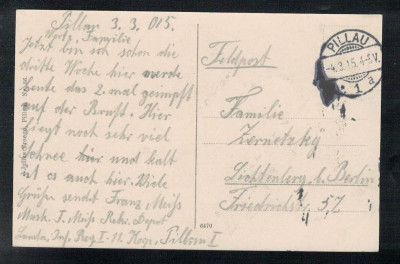 Pillau 3.3.015.
Wrtz. Familie
Jetzt bin ich schon die
dritte Woche hier werde
heute das 2-mal geimpft
auf der Brust. Hier
liegt noch sehr viel
Schnee hir und kalt
ist es auch hier. Viele
Grüße sendt Franz
I. Rekr. Depot
Inf. Reg. Pillau I
Feldpost
Familie
Zernetzky
Lichtenberg b. Berlin
Friedrichstr. 57
PILLAU
-4.3.15.4-5V.
1 a
6470